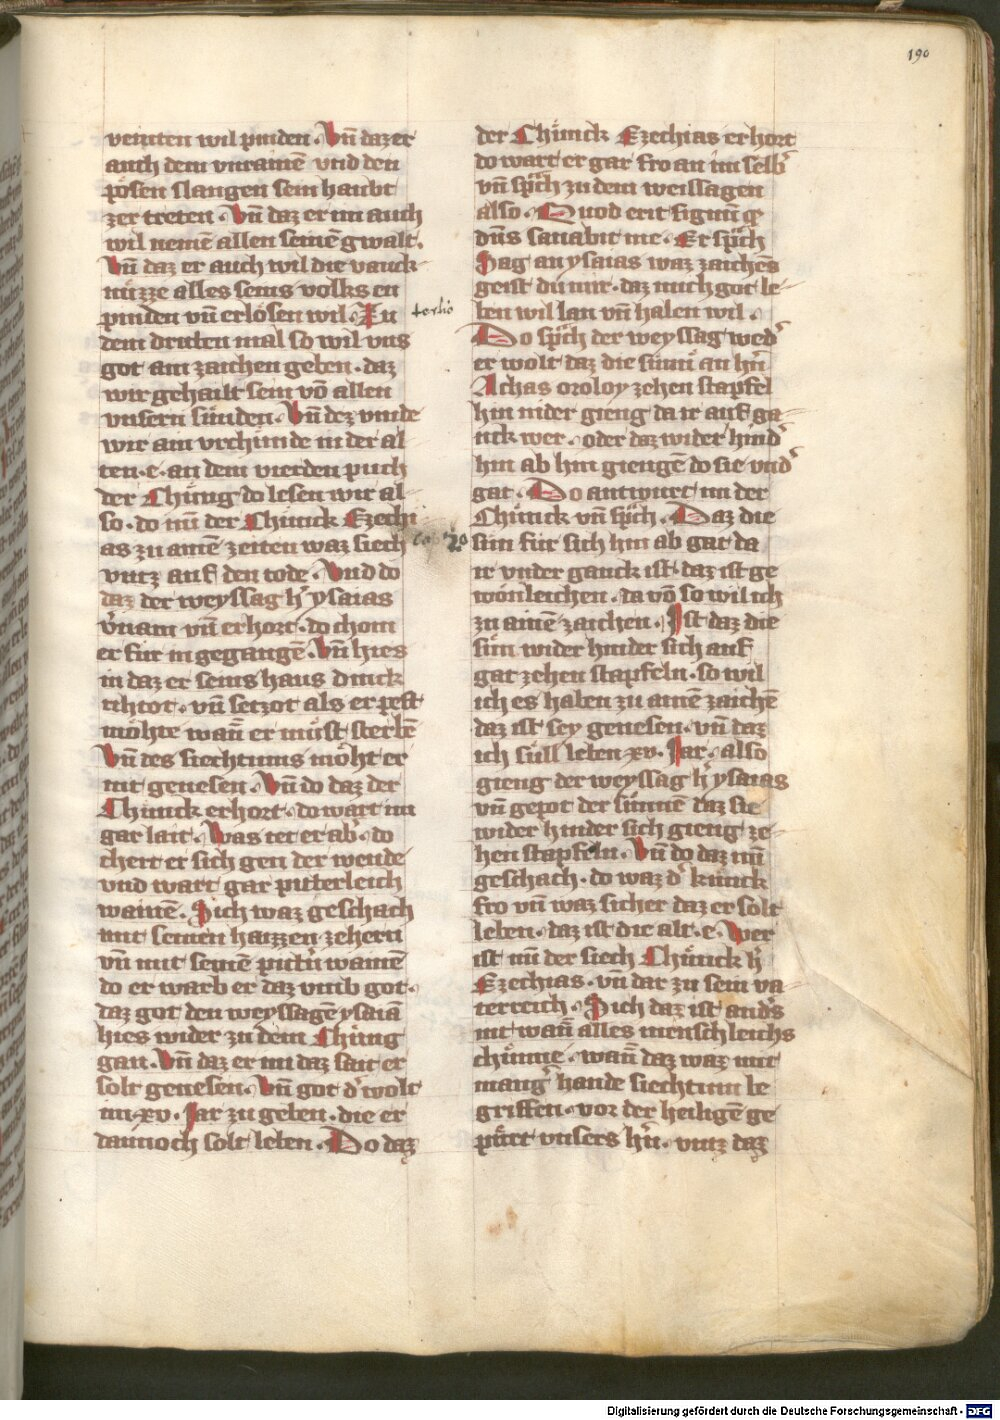 190
veinten wil pinden. Vñ daz er
auch dem vnrainē vnd den
pösen slangen sein haubt
zer treten. Vñ daz er im auch
wil nemē allen seinē gwalt.
Vñ daz er auch wil die vanck
nüzze alles seins volks en
pinden vñ erlösen wil. Zu
tertio
dem dritten mal so wil vns
got ain zaichen geben. daz
wir gehailt sein vō allen
vnsern sünden. Vñ dez vinde
wir ain vrchünde in der al
ten. e. an dem vierden puch
der Chüng do lesen wir al
so. do nū der Chünck Ezechi
as zu ainē zeiten waz siech
co 20
vntz auf den tode. Vnd do
daz der weyssag h' ysaias
v'nam vñ erhort. do chom
er für in gegangē. Vñ hies
in daz er seins haus dinck
rihtot. vñ setzot als er pest
möhte wañ er müst sterbē
Vñ des siechtums möht er
nit genesen. Vñ do daz der
Chünck erhort. do wart im
gar lait. Was tet er ab'. do
chert er sich gen der wende
vnd wart gar piterleich
wainē. Sich waz geschach
mit seinen haizzen zehern
vñ mit seinē pitt'n wainē
do er warb er daz vmb got.
daz got den weyssagē ysaiā
hies wider zu dem Chüng
gan. Vñ daz er im daz sait er
solt genesen. Vñ got d' wolt
im. xv. Jar zu geben. die er
dannoch solt leben. Do daz
der Chünck Ezechias erhort
do wart er gar fro an im selb'
vñ sp̃ch zu dem weissagen
also. Quod erit signū q̃
dñs sanabit me. Er sp̃ch
Sag an ysaias waz zaichēs
geist du mir. daz mich got le-
ben wil lan vñ halen wil.
Do sp̃ch der weyssag wed'
er wolt daz die sunn an h'n
Achas oroloy zehen stapfel
hin nider gieng da ir auf ga-
nck wer. oder daz wider hind'
hin ab hin giengē do sie vnd'
gat. Do antwurt im der
Chünck vñ sp̃ch. Daz die
sun für sich hin ab gat da
ir vnder ganck ist. daz ist ge
wonleichen. da vō so wil ich
zu ainē zaichen. Ist daz die
sün wider hinder sich auf
gat zehen stapfeln. so wil
ich es haben zu ainē zaichē
daz ist sey genesen. vñ daz
ich süll leben. xv. Jar. also
gieng der weyssag h' ysaias
vñ gepot der sünnē daz sie
wider hinder sich gieng ze-
hen stapfeln. Vñ do daz nū
geschach. do waz d' künck
fro vñ waz sicher daz er solt
leben. daz ist dir alt. e. Wer
ist nū der siech Chünck h'
Ezechias. vñ dar zu sein va
terreich. Sich daz ist and's
nit wañ alles menschleichs
chünne. wañ daz waz mit
mang' hande siechtum be
griffen. vor der heiligē ge
pürt vnsers h'n. vntz daz
Digitalisierung gefördert durch die Deutsche Forschungsgemeinschaft - DFG